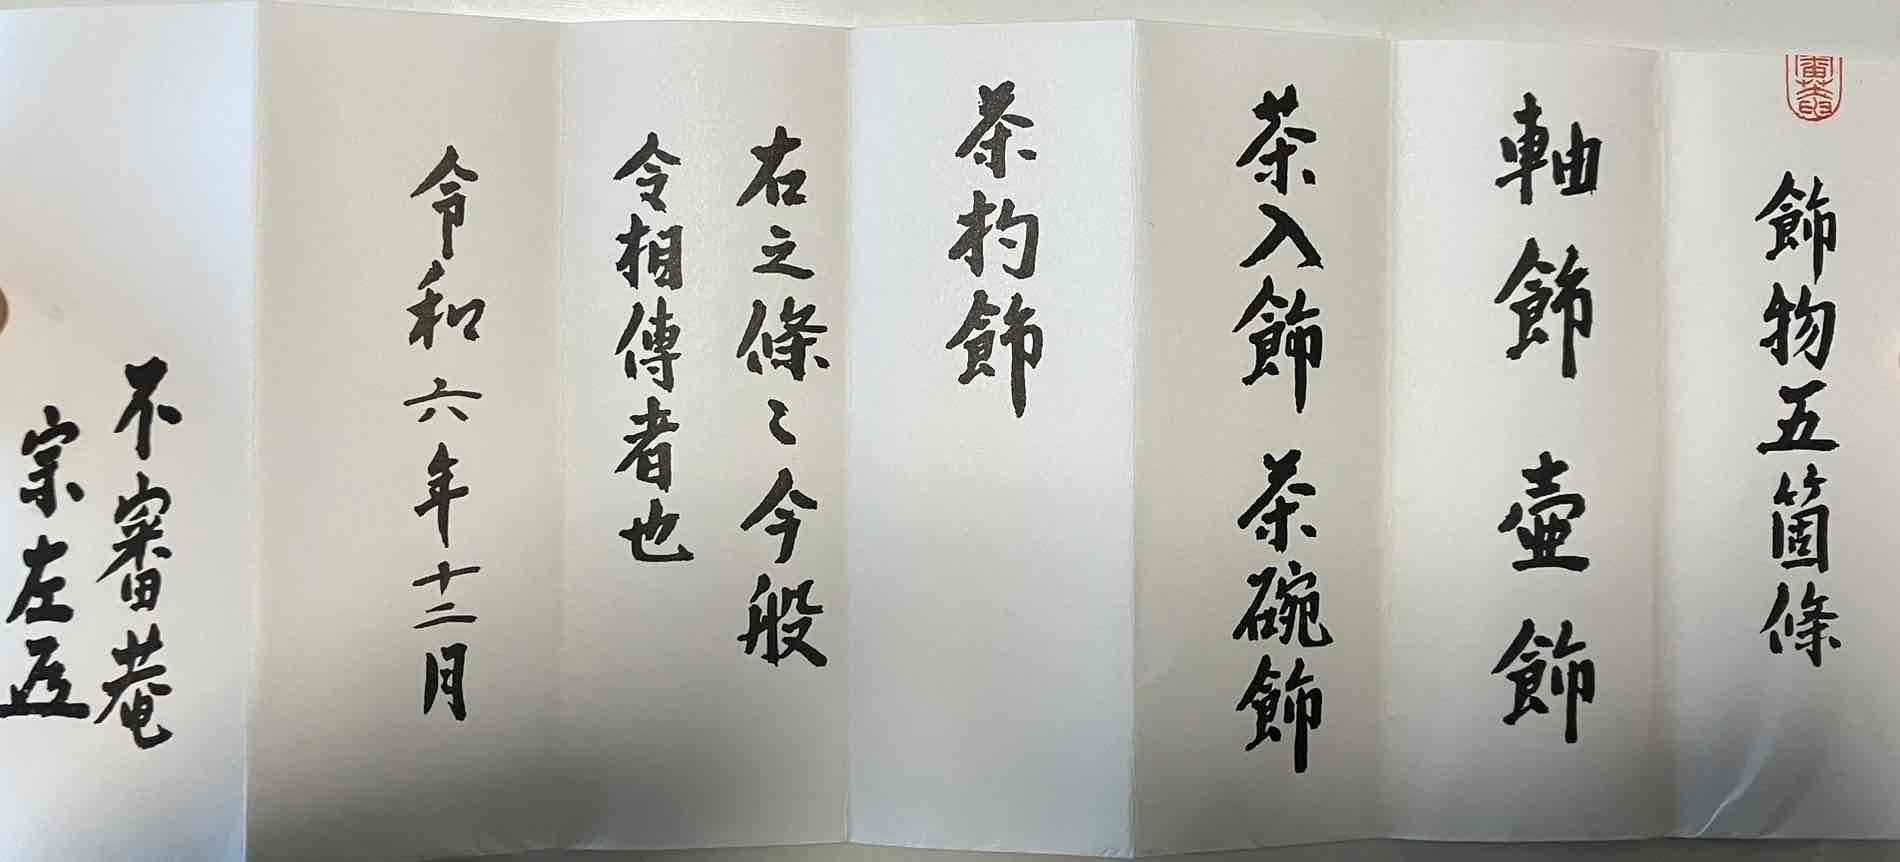 飾物五箇條
軸飾 壷飾
茶入飾 茶碗飾
茶杓飾
右之條〻今般
令相傳者也
令和六年十二月
不審菴
宗左